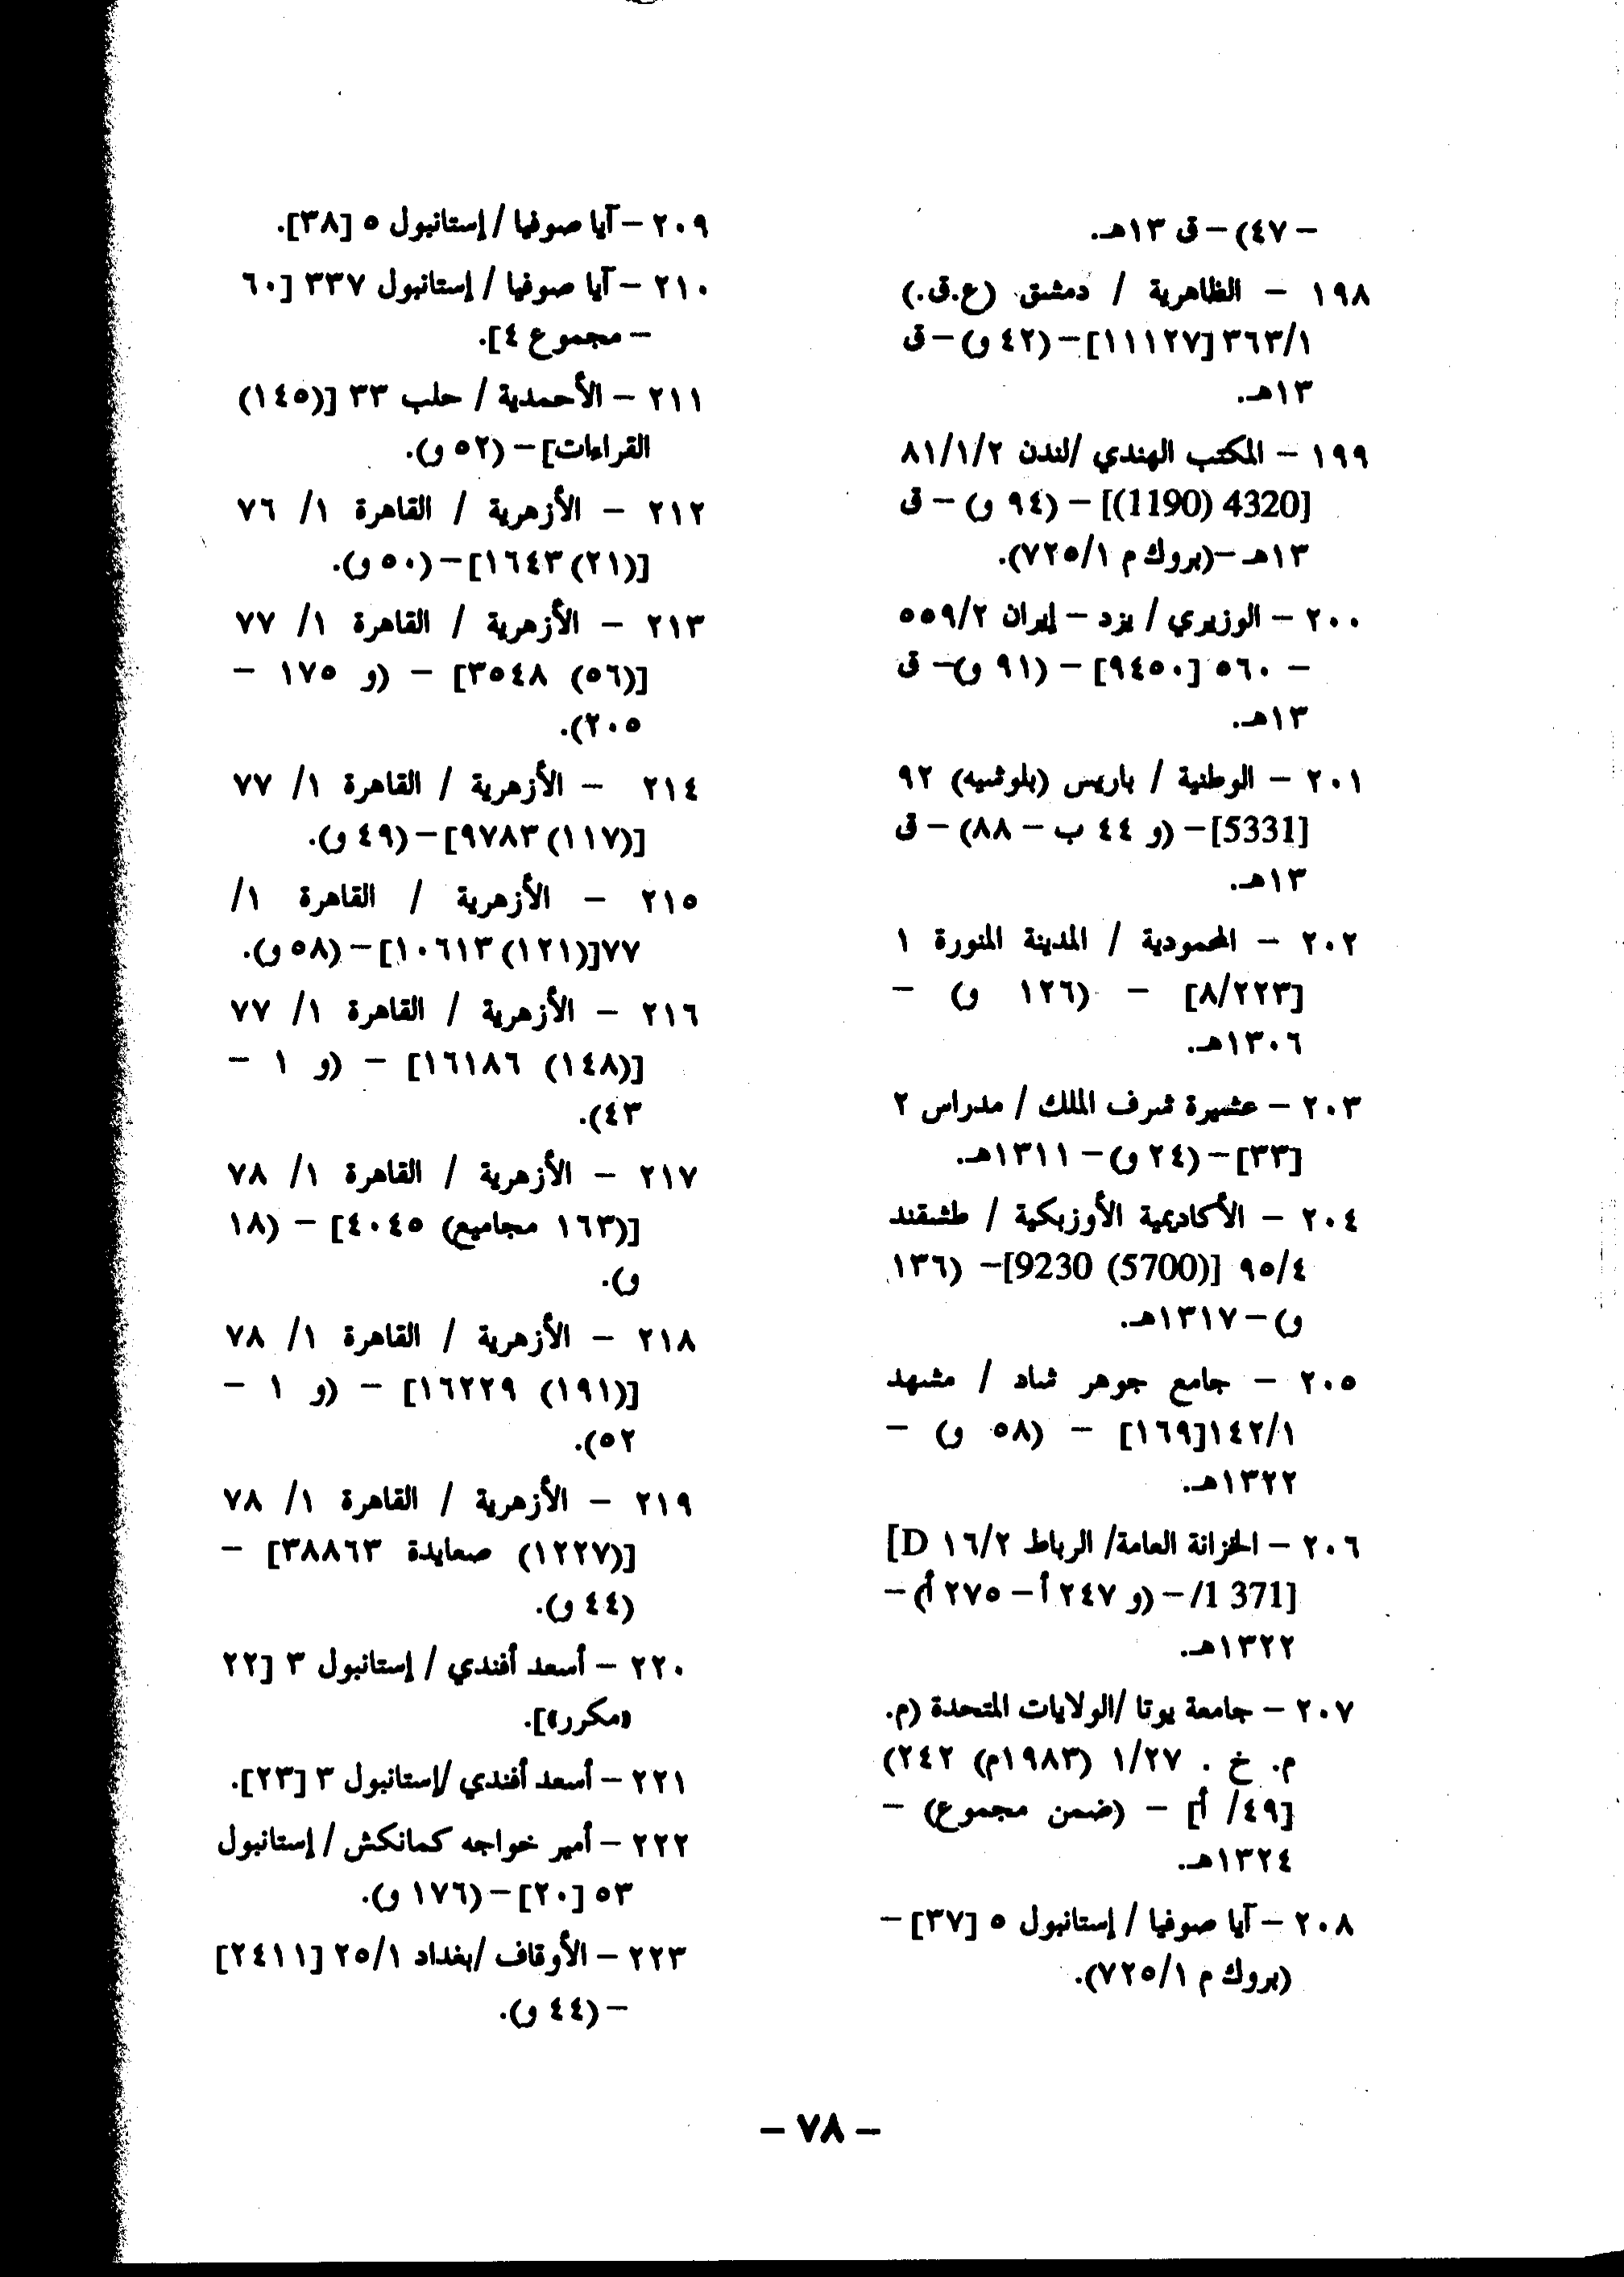 – ٤٧) – ق ١٣هـ.
١٩٨ – الظاهرية / دمشق (ع.ق.)
٣٦٣/١ [١١١٢٧] – (٤٢ و) – ق
١٣هـ.
١٩٩ – المكتب الهندي /لندن ٨١/١/٢
[4320 (1190)] – (٩٤ و) – ق
١٣هـ –(بروك م ٧٢٥/١).
٢٠٠ – الوزيري / يزد – إيران ٥٥٩/٢
– ٥٦٠ [٩٤٥٠] – (٩١ و)– ق
١٣هـ.
٢٠١ – الوطنية / باريس (بلوشيه) ٩٢
[5331] – (و ٤٤ ب – ٨٨) – ق
١٣هـ.
٢٠٢ – المحمودية / المدينة المنورة ١
[٨/٢٢٣] – (١٢٦ و) –
١٣٠٦هـ.
٢٠٣ – عشيرة شرف الملك / مدراس ٢
[٣٣] – (٢٤ و) – ١٣١١هـ.
٢٠٤ – الأكاديمية الأوزبكية / طشقند
٩٥/٤ [(5700) 9230]– (١٣٦
و) – ١٣١٧هـ.
٢٠٥ – جامع جوهر شاد / مشهد
١٤٢/١[١٦٩] – (٥٨ و) –
١٣٢٢هـ.
٢٠٦ – الخزانة العامة/ الرباط ١٦/٢ D]
[1 371/ – (و ٢٤٧ أ – ٢٧٥ أ) –
١٣٢٢هـ.
٢٠٧ – جامعة يوتا /الولايات المتحدة (م.
م. خ . ١/٢٧ (١٩٨٣م) ٢٤٢)
[٤٩/ أ] – (ضمن مجموع) –
١٣٢٤هـ.
٢٠٨ – آيا صوفيا / إستانبول ٥ [٣٧] –
(بروك م ٧٢٥/١).
٢٠٩ – آيا صوفيا / إستانبول ٥ [٣٨].
٢١٠ – آيا صوفيا / إستانبول ٣٣٧ [٦٠
– مجموع ٤].
٢١١ – الأحمدية / حلب ٣٣ [(١٤٥)
القراءات] – (٥٢ و).
٢١٢ – الأزهرية / القاهرة ١/ ٧٦
[(٢١) ١٦٤٣] – (٥٠ و).
٢١٣ – الأزهرية / القاهرة ١/ ٧٧
[(٥٦) ٣٥٤٨] – (و ١٧٥ –
٢٠٥).
٢١٤ – الأزهرية / القاهرة ١/ ٧٧
[(١١٧) ٩٧٨٣] – (٤٩ و).
٢١٥ – الأزهرية / القاهرة ١/
٧٧[(١٢١) ١٠٦١٣] – (٥٨ و).
٢١٦ – الأزهرية / القاهرة ١/ ٧٧
[(١٤٨) ١٦١٨٦] – (و ١ –
٤٣).
٢١٧ – الأزهرية / القاهرة ١/ ٧٨
[(١٦٣ مجاميع) ٤٠٤٥] – (١٨
و).
٢١٨ – الأزهرية / القاهرة ١/ ٧٨
[(١٩١) ١٦٢٢٩] – (و ١ –
٥٢).
٢١٩ – الأزهرية / القاهرة ١/ ٧٨
[(١٢٢٧) صعايدة ٣٨٨٦٣] –
(٤٤ و).
٢٢٠ – أسعد أفندي / إستانبول ٣ [٢٢
«مكرر»].
٢٢١ – أسعد أفندي /إستانبول ٣ [٢٣].
٢٢٢ – أمير خواجه كمانكش / إستانبول
٥٣ [٢٠] – (١٧٦ و).
٢٢٣ – الأوقاف /بغداد ٢٥/١ [٢٤١١]
– (٤٤ و).
– ٧٨ –